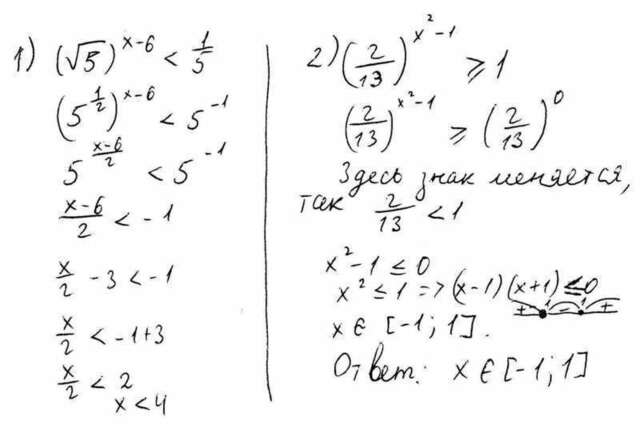 1) (√5)^(x-6) < 1/5
(5^(1/2))^(x-6) < 5^(-1)
5^((x-6)/2) < 5^(-1)
(x-6)/2 < -1
x/2 - 3 < -1
x/2 < -1+3
x/2 < 2
x < 4
2) (2/13)^(x²-1) ≥ 1
(2/13)^(x²-1) ≥ (2/13)^0
Здесь знак меняется,
так 2/13 < 1
x²-1 ≤ 0
x² ≤ 1 => (x-1)(x+1) ≤ 0
+ -1 - 1 +
x ∈ [-1; 1].
Ответ: x ∈ [-1; 1]